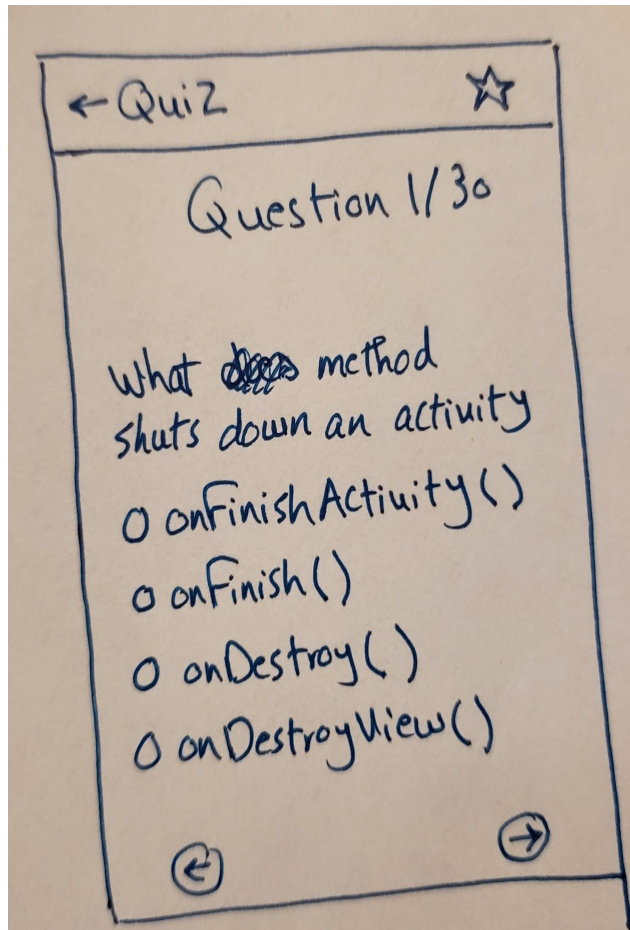 ←Quiz
Question 1/30
What method
shuts down an activity
onFinishActivity()
onFinish()
onDestroy()
onDestroyView()